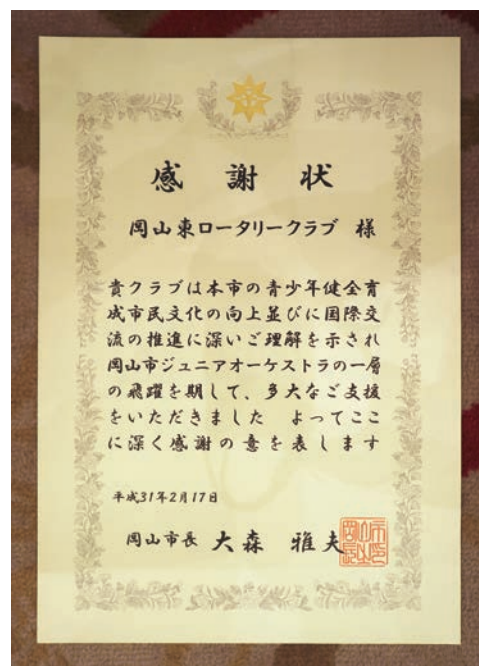 感謝状
岡山東ロータリークラブ 様
貴クラブは本市の青少年健全育
成市民文化の向上並びに国際交
流の推進に深いご理解を示され
岡山市ジュニアオーケストラの一層
の飛躍を期して、多大なご支援
をいただきました よってここ
に深く感謝の意を表します
平成31年2月17日
岡山市長 大森 雅夫